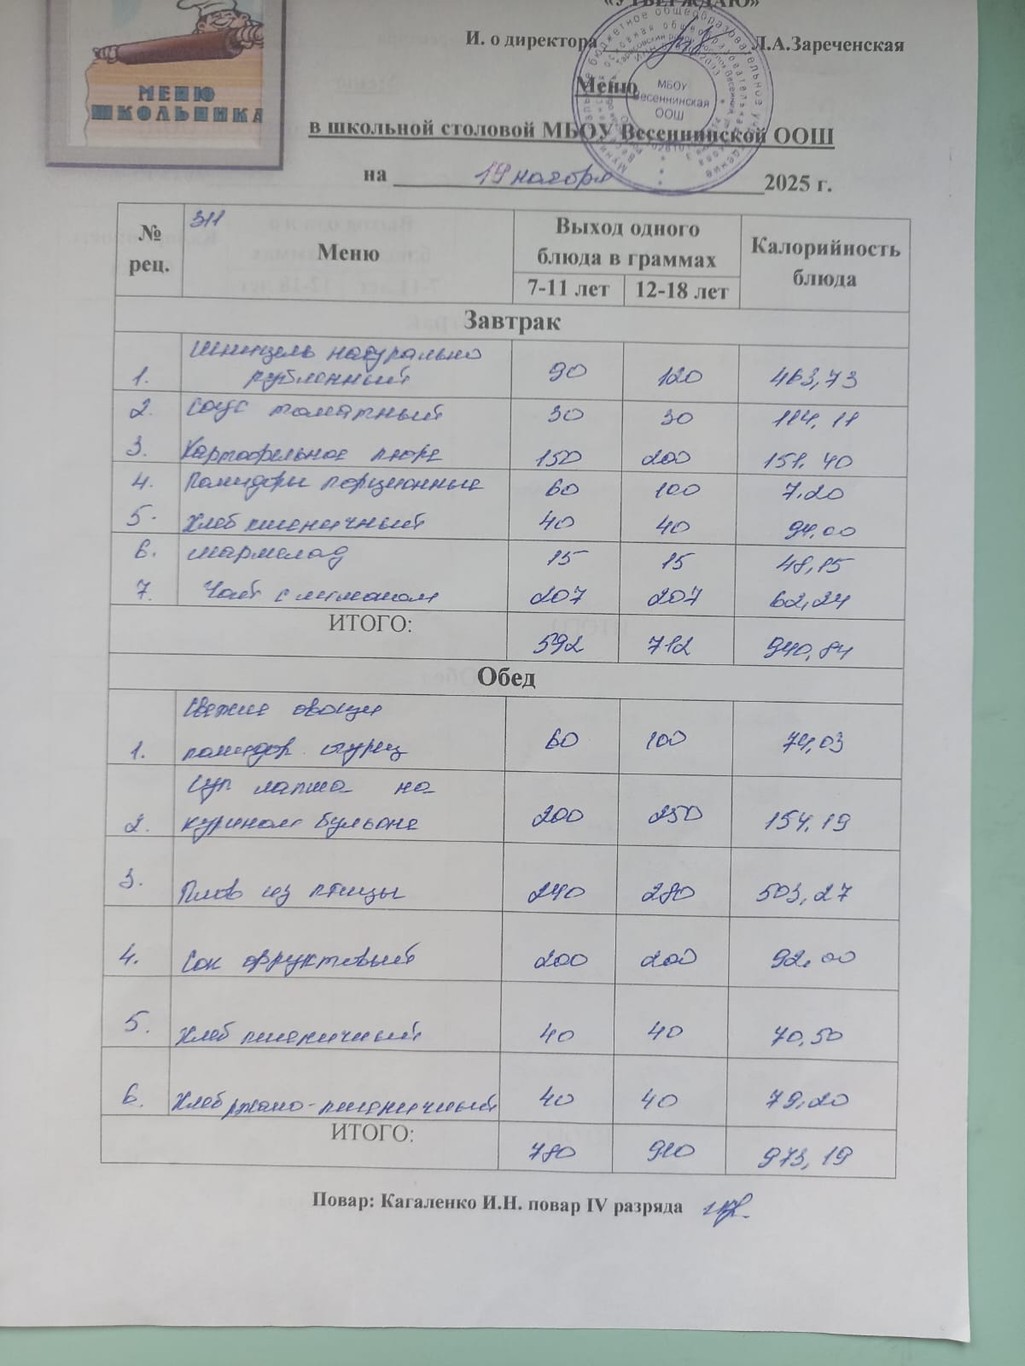 «УТВЕРЖДАЮ»
И. о директора Л.А.Зареченская
МЕНЮ
ШКОЛЬНИКА
МБОУ
Весеннинская
ООШ
Меню
в школьной столовой МБОУ Весеннинской ООШ
на 19 ноября 2025 г.
№ рец. 311 Меню Выход одного блюда в граммах Калорийность блюда
7-11 лет 12-18 лет
Завтрак
Шницель натурально
1. рубленный 90 120 463,73
2. Соус томатный 30 30 114,11
3. Картофельное пюре 150 200 151,40
4. Помидоры порционные 60 100 7.20
5. Хлеб пшеничный 40 40 94,00
6. мармелад 15 15 48,15
7. Чай с лимоном 207 207 62,24
ИТОГО: 592 712 940,84
Обед
Свежие овощи
1. помидор огурец 60 100 74,03
Суп лапша на
2. курином бульоне 200 250 154,19
3. Плов из птицы 240 280 503,27
4. Сок фруктовый 200 200 92,00
5. Хлеб пшеничный 40 40 70,50
6. Хлеб ржано-пшеничный 40 40 79,20
ИТОГО: 780 910 973,19
Повар: Кагаленко И.Н. повар IV разряда